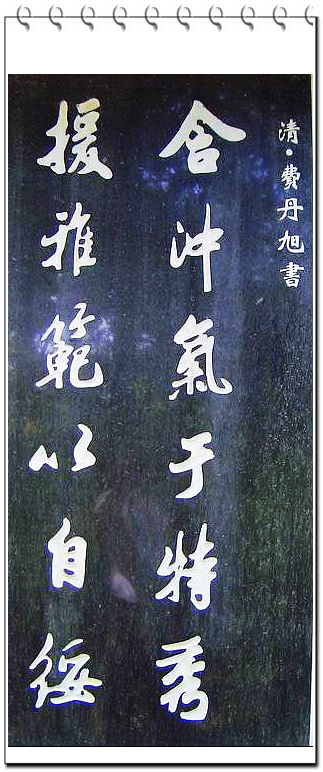 清·費丹旭書
含沖氣于特秀
援雅範以自綏